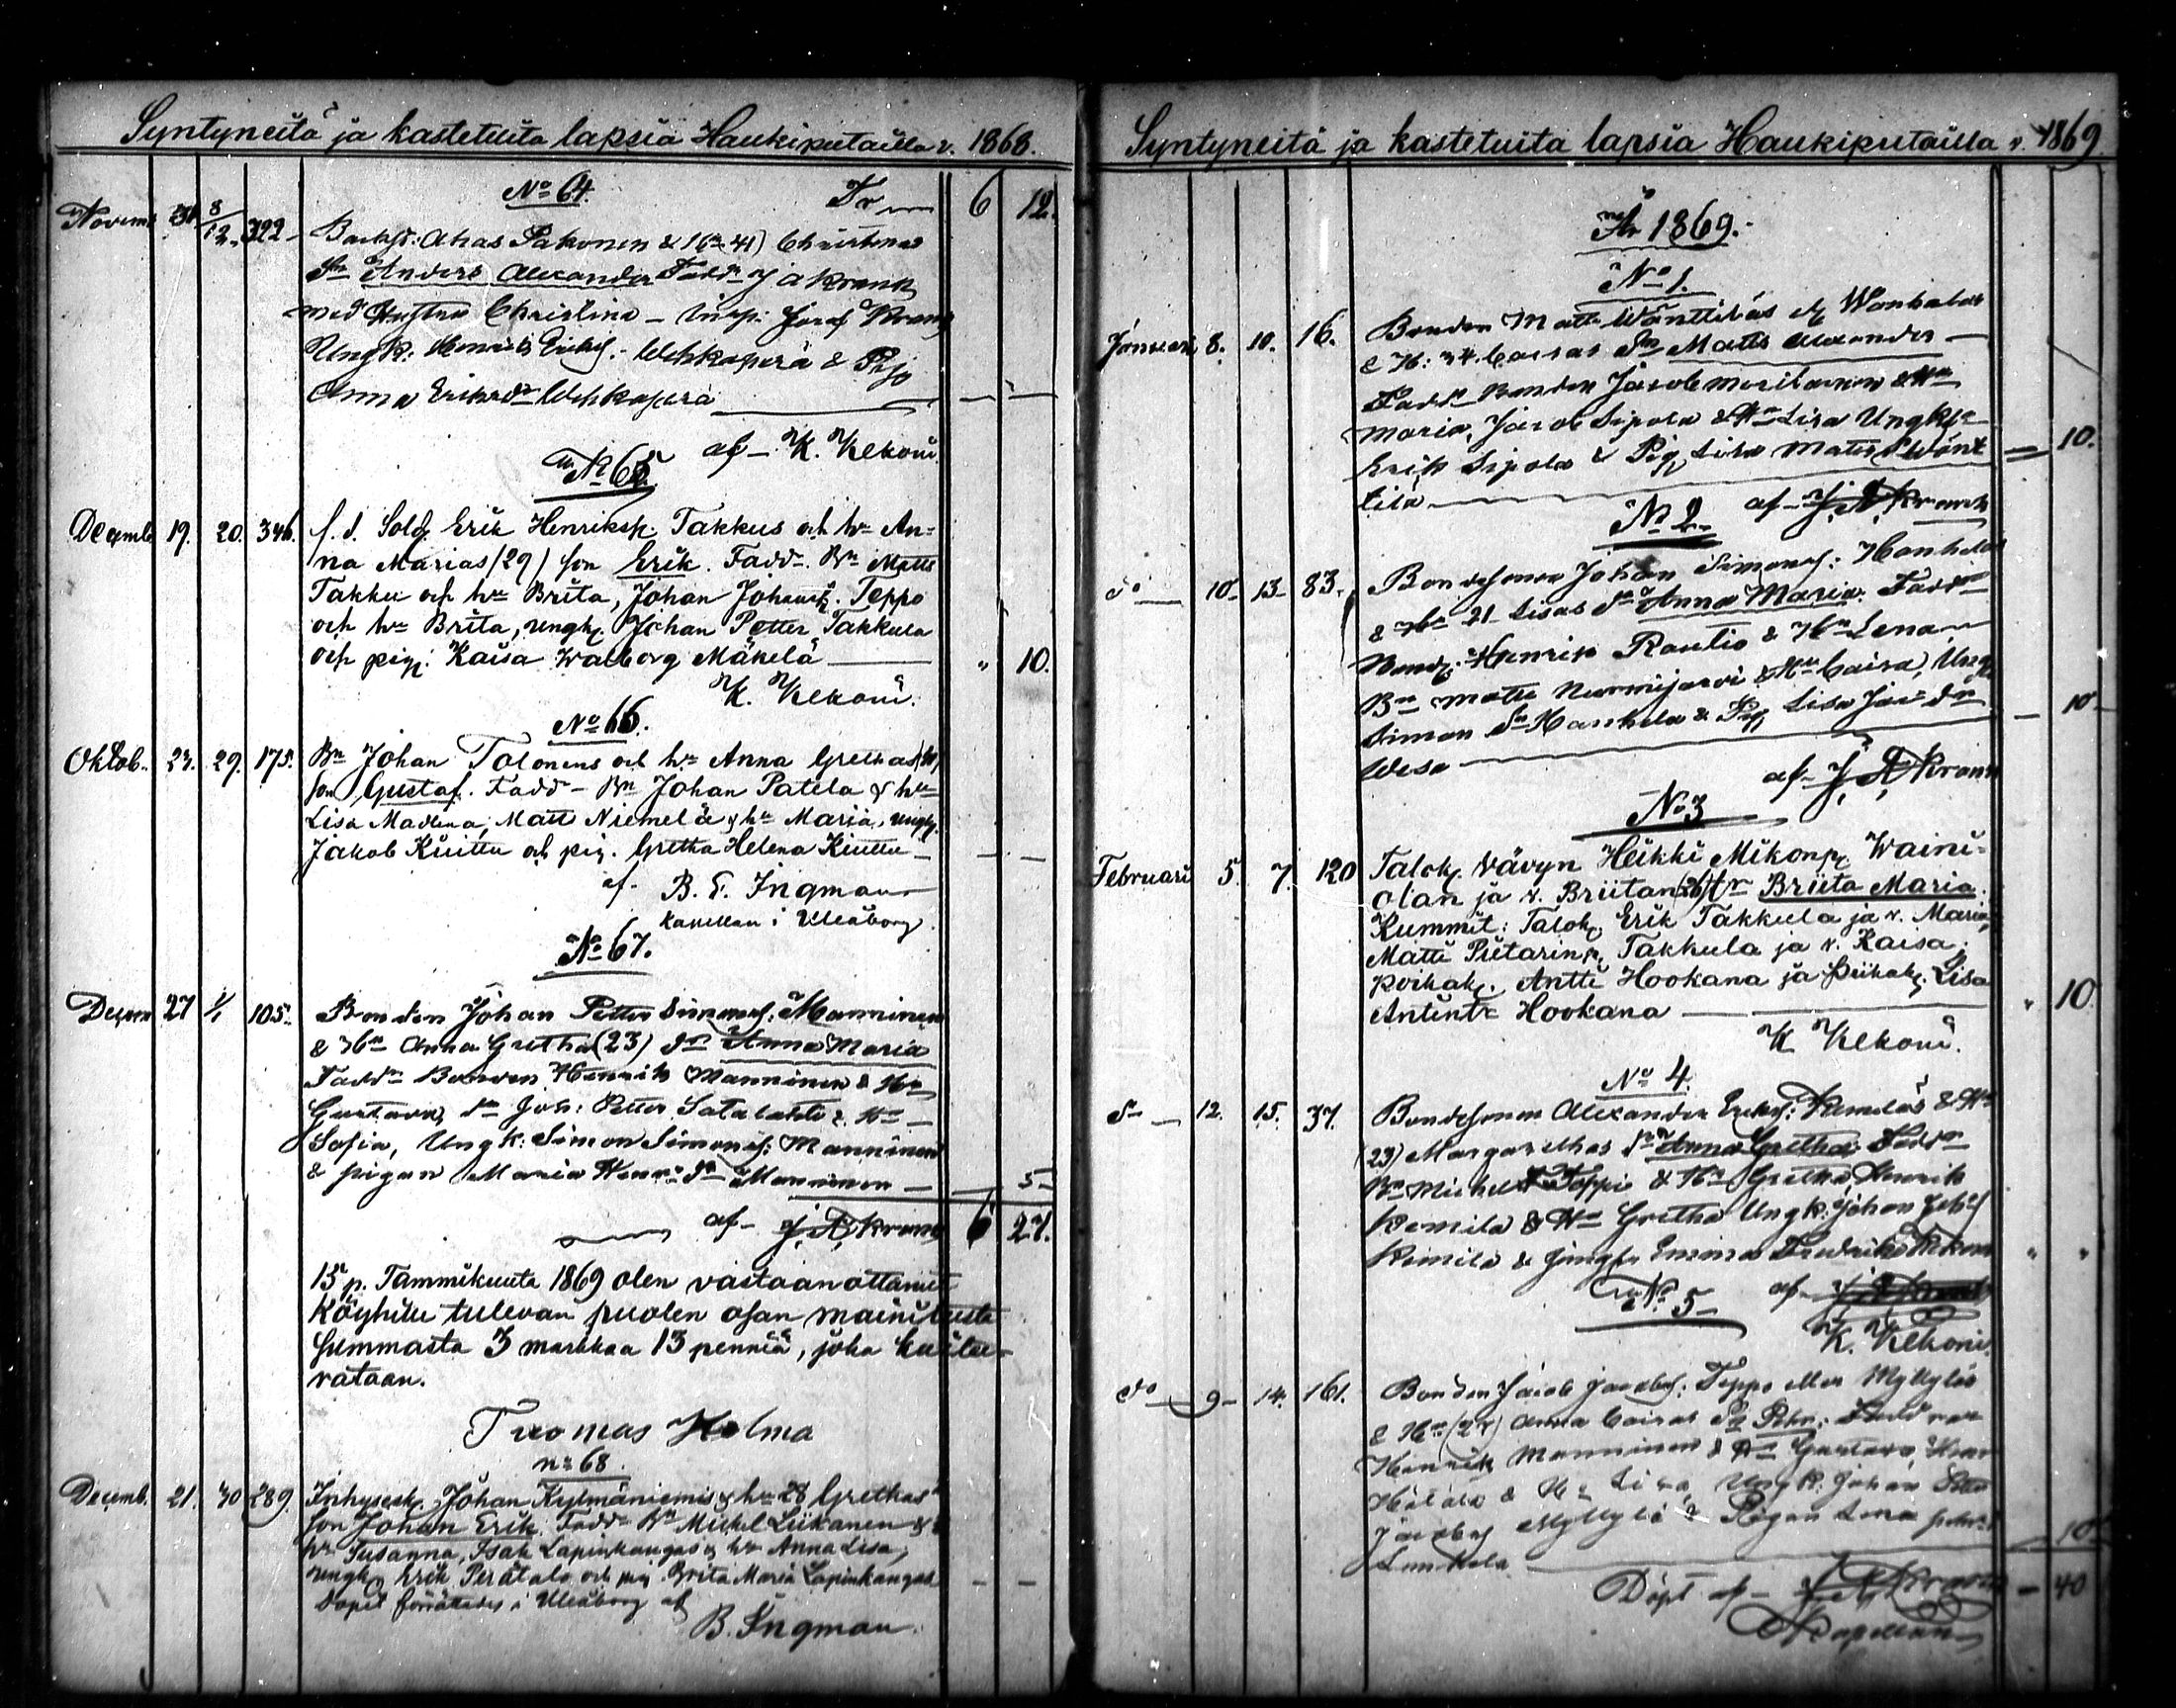 Syntyneitä ja kastetuita lapsia Haukiputailla v. 1868.
No 64. Tr 6 12.
Novem 31 8/12 322 Backst: Ahas Pakonen & Hn (41) Christinas
Sn Anders Alexander Fadd: J A Krank
med Hustru Christina – Insp: Josef Krank
Ungk: Henrik Ericks: Uhkaperä & Pig
Anna Eriksdr Uhkaperä
af K. Kekoni.
No 65.
Decemb 19. 20. 346. f. d. Sold. Erik Henriksp. Takkus och hu An-
na Marias (29) son Erik. Fadd. Bn Matts
Takku och hu Brita, Johan Johansp. Teppo
och hu Brita, ungk. Johan Petter Takkula
och pig. Kaisa Walborg Mäkelä " 10.
K. Kekoni.
No 66.
Oktob. 23. 29. 175. Bn Johan Tolonens och hu Anna Grethas
son Gustaf. Fadd – Bn Johan Patela & hu
Lisa Madlena, Matts Niemelä & hu Maria, ungk.
Jakob Kiuttu och pig. Gretha Helena Kiuttu –
af. B. F. Ingman
kapellan i Uleåborg.
No 67.
Decem 27 1/1 105. Bonden Johan Petter Simons: Manninen
& Hn Anna Gretha (23) dr Anna Maria
Fadd Bonden Henrik Manninen & Hn
Gustava, Joh: Petter Satalahti & Hn
Sofia, Ungk: Simon Simons: Manninen
& pigan Maria Henr: dr Manninen 5
af J. A. Krank 6 27.
15 p. Tammikuuta 1869 olen vastaanottanut
köyhille tulevan puolen osan mainitusta
summasta 3 markkaa 13 penniä, joka kuitee-
rataan.
Tuomas Holma
no 68.
Decemb. 21. 30 289. Inhysesk. Johan Kylmäniemis & hu 28 Grethas
son Johan Erik. Fadd Bn Mickel Liikanen &
hu Susanna, Isak Lapinkangas & hu Anna Lisa,
ungk. Erik Perätalo och pig. Brita Maria Lapinkangas
Dopet förrättades i Uleåborg af
B. Ingman.
Syntyneitä ja kastetuita lapsia Haukiputailla v. 1869.
År 1869.
No 1.
Januari 8. 10. 16. Bonden Matts Wänttiläs
& H: 34 Caisas Sn Matts Alexander
Fadd Bonden Jacob & Hn
Maria, Jacob Sipola & Hn Lisa Ungk
Erik Sipola & Pig Lisa Matts Wänt 10.
tilä
af J. A. Krank
No 2.
do 10 13 83. Bondesonen Johan Simons: Hanhelas
& Hn 21 Lisas dr Anna Maria. Fadd
Bond: Henrik Rautio & Hn Lena
Bn Matts Nurmijärvi & Hn Caisa, Ungk
Simon Hanhela & Pig Lisa dr 10
Wesa
af J. A. Krank
No 3
Februari 5. 7. 120 Talok. vävyn Heikki Mikonp. Waini-
olan ja v. Briitan (26) tr Briita Maria.
Kummit: Talok. Erik Takkula ja v. Maria,
Matti Pietarinp. Takkula ja v. Kaisa.
Poikak. Antti Hookana ja piikak. Lisa
Antintr Hookana " 10.
K. Kekoni.
No 4.
do 12. 15. 37. Bondesonen Alexander Ericks: Kemiläs & Hn
(23) Margarethas dr Anna Gretha: Fadd
Bn Michel Teppo & Hn Gretha, Henrik
Kemilä & Hn Gretha Ungk: Johan
Kemilä & Jungfr Emma Fredrika " "
No 5 af
K. Kekoni.
do 9 14. 161. Bonden Jacob Jacobs: Teppo eller Myllyläs
& Hn (27) Anna Caisas Sn Petr: Faddrar
Henrik Manninen & Hn Gustava,
& Hn Lisa, Ungk. Johan Petter
Jacobs Myllylä & Pigan Lena
10
Döpt af J A Krank 40
Kapellan